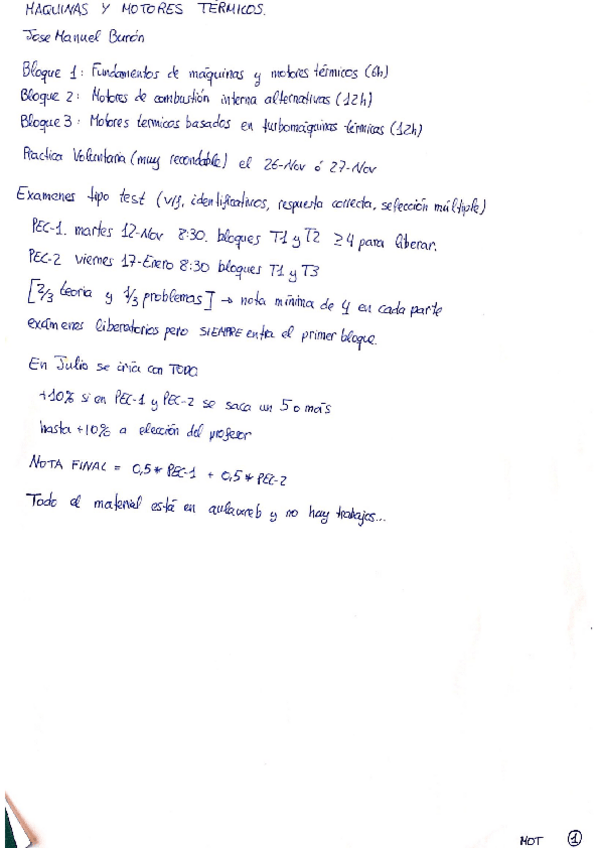 MAQUINAS Y MOTORES TÉRMICOS.
Jose Manuel Burón
Bloque 1: Fundamentos de máquinas y motores térmicos (6h)
Bloque 2: Motores de combustión interna alternativas (12h)
Bloque 3: Motores termicos basados en turbomáquinas térmicas (12h)
Practica Voluntaria (muy recondable) el 26-Nov ó 27-Nov
Examenes tipo test (v/f, identificativos, respuesta correcta, selección múltiple)
PEC-1. martes 12-Nov 8:30. bloques T1 y T2 ≥4 para liberar.
PEC-2 viernes 17-Enero 8:30 bloques T1 y T3
[2/3 teoria y 1/3 problemas] → nota mínima de 4 en cada parte
exámenes liberatorios pero SIEMPRE entra el primer bloque.
En Julio se iría con TODO
+10% si en PEC-1 y PEC-2 se saca un 5 o más
hasta +10% a elección del profesor
NOTA FINAL = 0,5 * PEC-1 + 0,5 * PEC-2
Todo el material está en aulaweb y no hay trabajos...
MOT 1